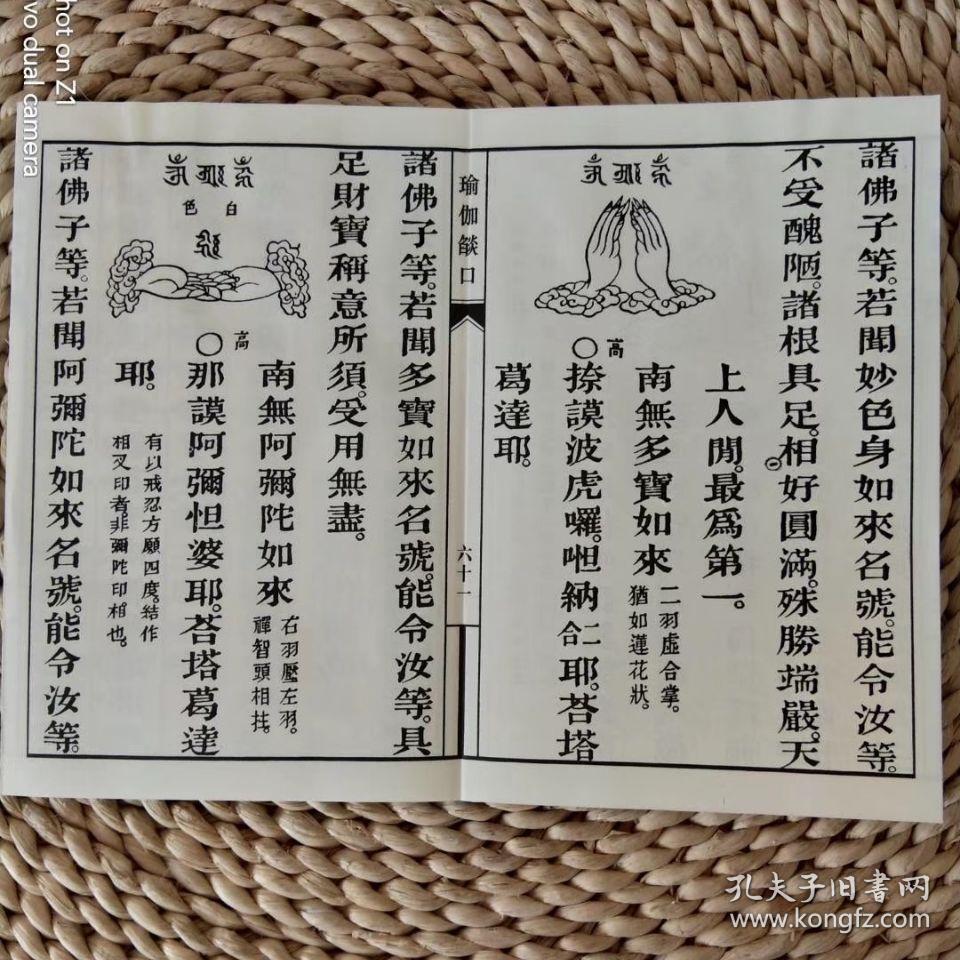 諸佛子等。若聞妙色身如來名號。能令汝等。
不受醜陋。諸根具足。相好圓滿。殊勝端嚴。天
上人間。最爲第一。
南無多寶如來
二羽虛合掌。
猶如蓮花狀。
高
○捺謨波虎囉。怛納二合耶。荅塔
葛達耶。
瑜伽燄口
六十一
諸佛子等。若聞多寶如來名號。能令汝等。具
足財寶稱意所須。受用無盡。
南無阿彌陀如來
右羽壓左羽。
禪智頭相拄。
高
○那謨阿彌怛婆耶。荅塔葛達
耶。
有以戒忍方願四度。結作
相叉印者。非彌陀印相也。
白色
諸佛子等。若聞阿彌陀如來名號。能令汝等。
Shot on Z1
vivo dual camera
孔夫子旧书网
www.kongfz.com